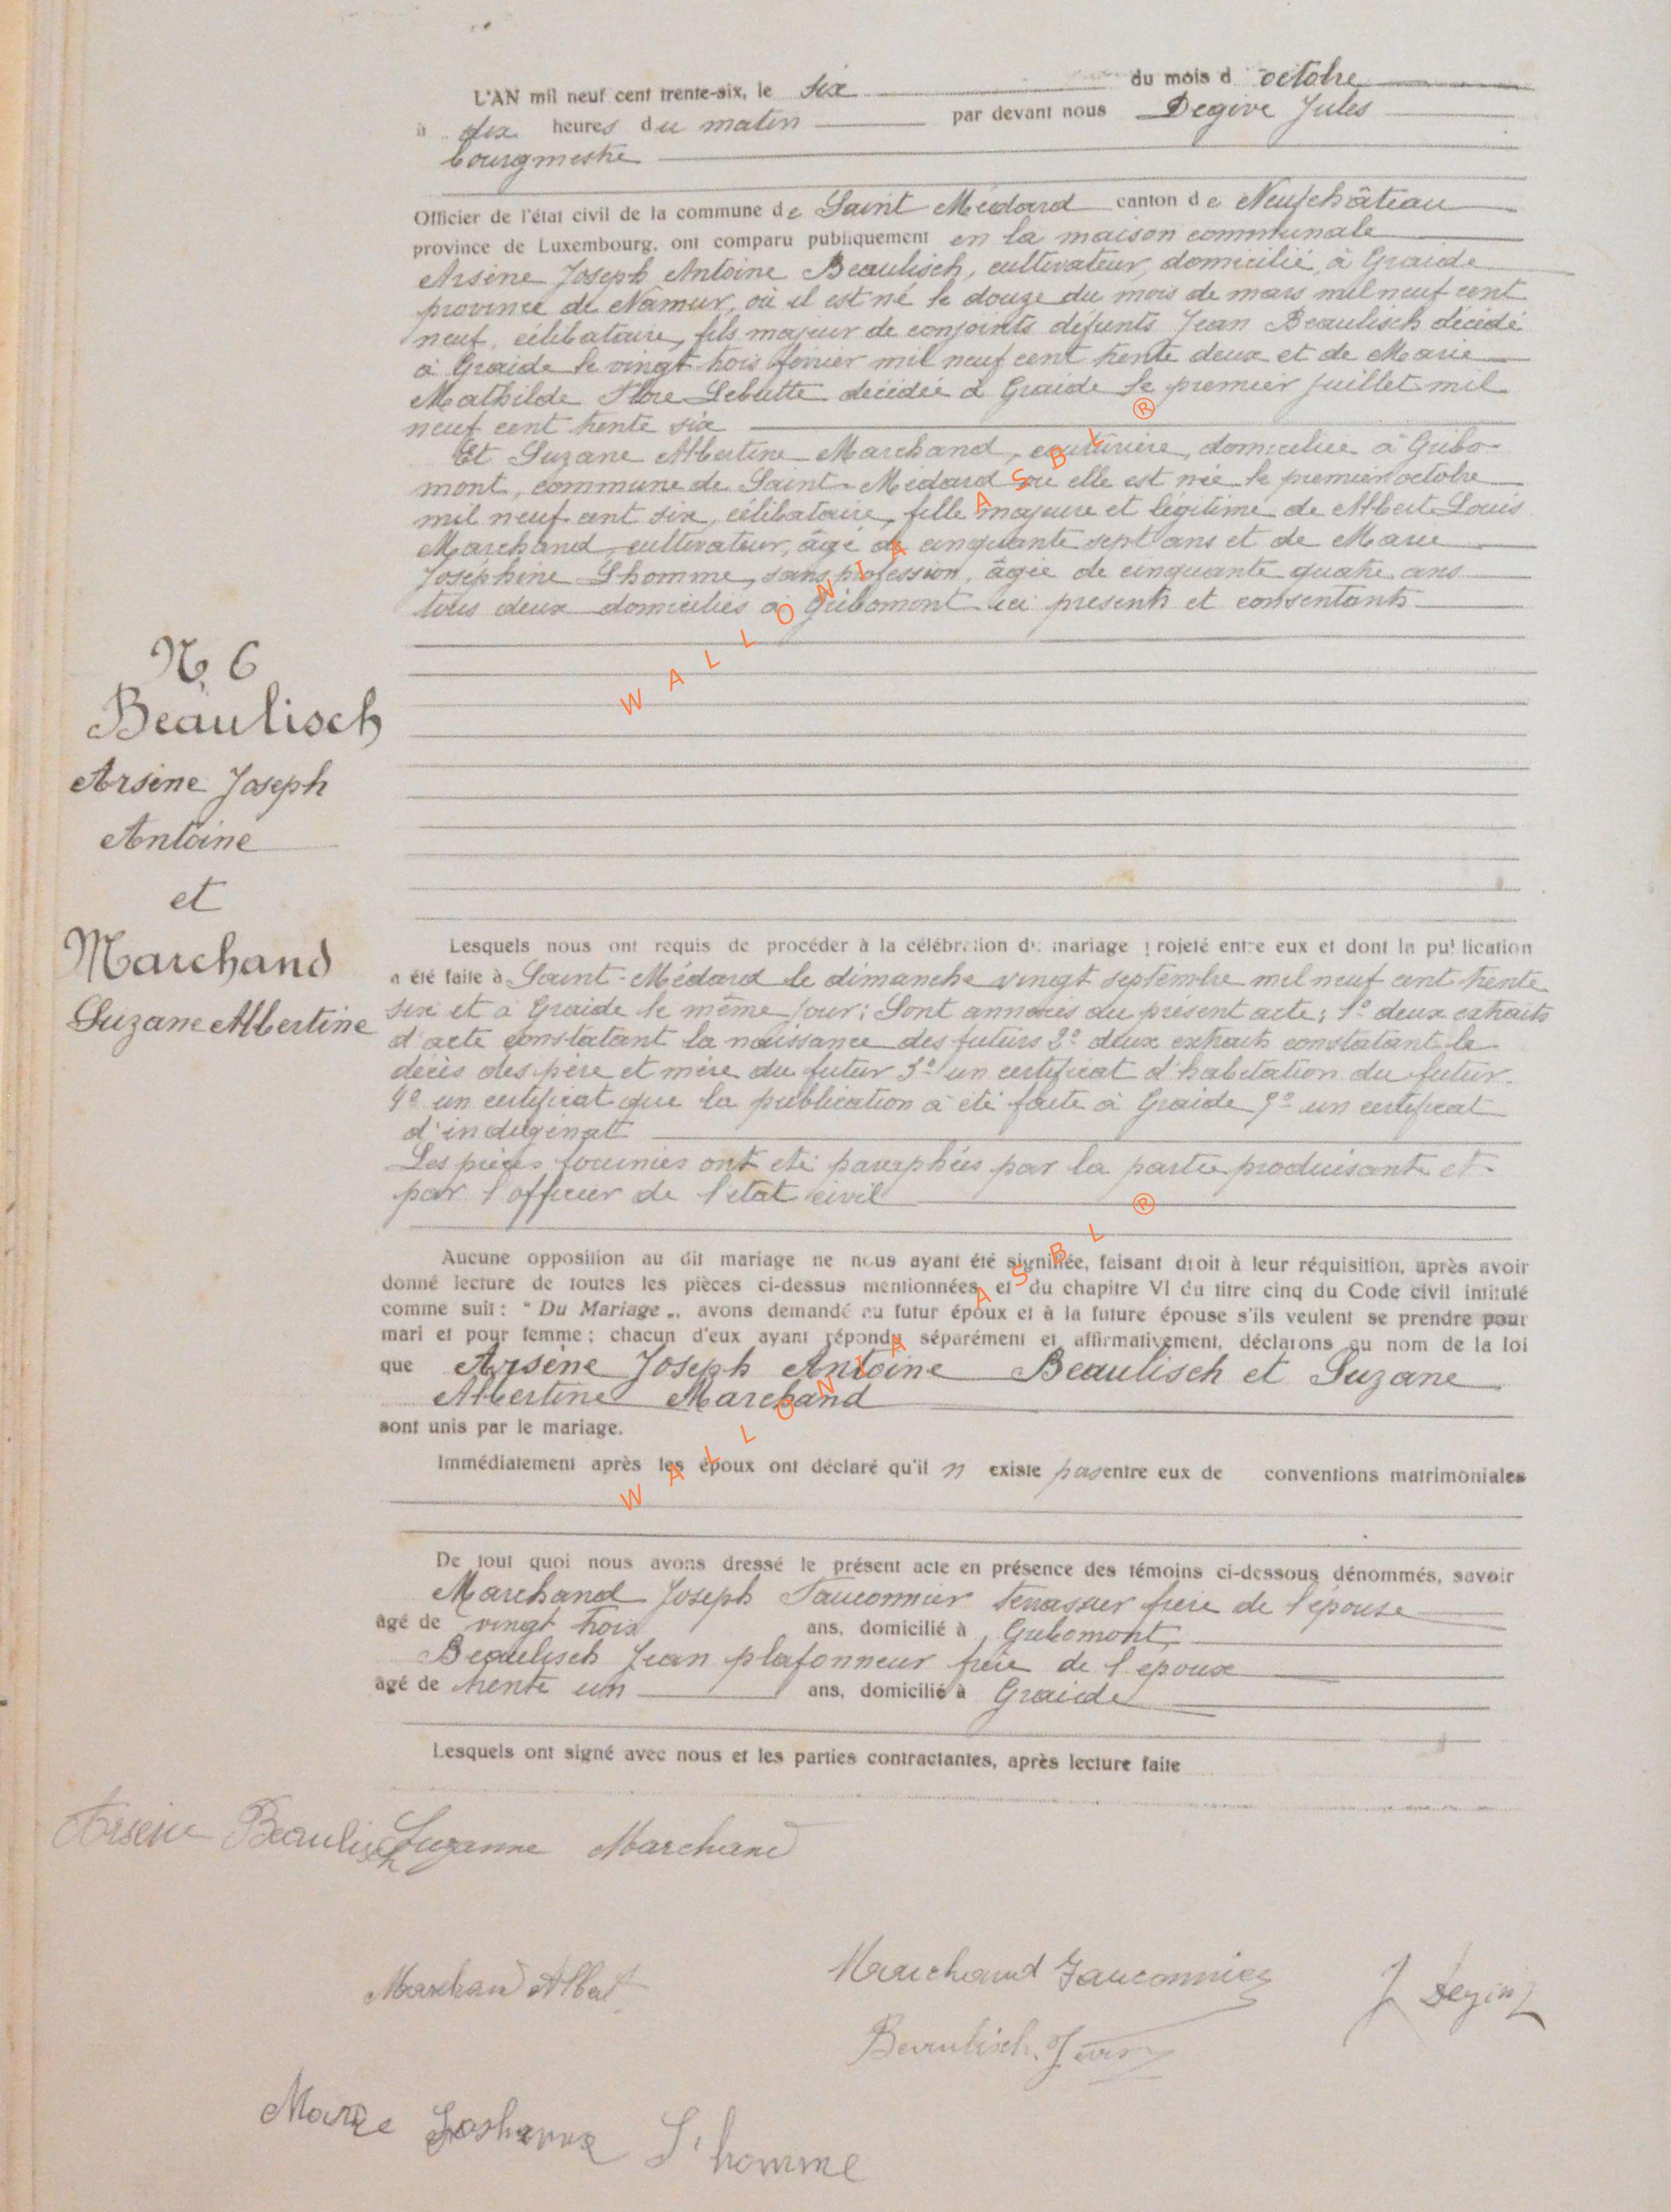 L'AN mil neuf cent trente-six, le six du mois d octobre
à dix heures du matin par devant nous Degive Jules
bourgmestre
Officier de l'état civil de la commune de Saint Médard canton de Neufchâteau
province de Luxembourg, ont comparu publiquement en la maison communale
Arsène Joseph Antoine Beaulisch, cultivateur, domicilié à Graide
province de Namur, où il est né le douze du mois de mars mil neuf cent
neuf, célibataire, fils majeur de conjoints défunts Jean Beaulisch décédé
à Graide le vingt trois février mil neuf cent trente deux et de Marie
Mathilde Flore Lebutte décédée à Graide le premier juillet mil
neuf cent trente six
Et Suzane Albertine Marchand, couturière, domiciliée à Gribo-
mont, commune de Saint-Médard où elle est née le premier octobre
mil neuf cent six, célibataire, fille majeure et légitime de Albert Louis
Marchand, cultivateur, âgé de cinquante sept ans et de Marie
Joséphine Lhomme, sans profession, âgée de cinquante quatre ans
tous deux domiciliés à Gribomont ici présents et consentants
W A L L O N I A A S B L ®
N° 6
Beaulisch
Arsène Joseph
Antoine
et
Marchand
Suzane Albertine
Lesquels nous ont requis de procéder à la célébration du mariage projeté entre eux et dont la publication
a été faite à Saint-Médard le dimanche vingt septembre mil neuf cent trente
six et à Graide le même jour; Sont annexés au présent acte; 1° deux extraits
d'acte constatant la naissance des futurs 2° deux extraits constatant le
décès des père et mère du futur 3° un certificat d'habitation du futur.
4° un certificat que la publication a été faite à Graide 5° un certificat
d'indigénat
Les pièces fournies ont été paraphées par la partie produisante et
par l'officier de l'état civil
Aucune opposition au dit mariage ne nous ayant été signifiée, faisant droit à leur réquisition, après avoir
donné lecture de toutes les pièces ci-dessus mentionnées et du chapitre VI du titre cinq du Code civil intitulé
comme suit : " Du Mariage „, avons demandé au futur époux et à la future épouse s'ils veulent se prendre pour
mari et pour femme ; chacun d'eux ayant répondu séparément et affirmativement, déclarons au nom de la loi
que Arsène Joseph Antoine Beaulisch et Suzane
Albertine Marchand
sont unis par le mariage.
W A L L O N I A A S B L ®
Immédiatement après les époux ont déclaré qu'il n existe pas entre eux de conventions matrimoniales
De tout quoi nous avons dressé le présent acte en présence des témoins ci-dessous dénommés, savoir
Marchand Joseph Fauconnier terrassier frère de l'épouse
agé de vingt trois ans, domicilié à Gribomont,
Beaulisch Jean plafonneur frère de l'epoux
agé de trente un ans, domicilié à Graide
Lesquels ont signé avec nous et les parties contractantes, après lecture faite
Arsène Beaulisch Suzanne Marchand
Marchand Albert Marchand Fauconnier J Degive
Beaulisch. Jean
Marie L'homme